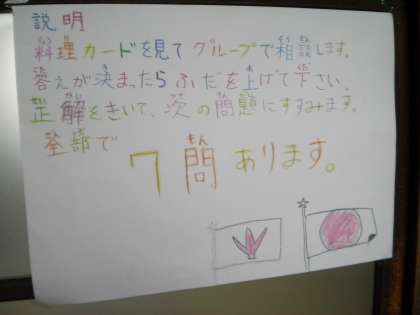 説明
料理カードを見てグループで相談します。
答えが決まったらふだを上げて下さい。
正解をきいて、次の問題にすすみます。
全部で
7問あります。